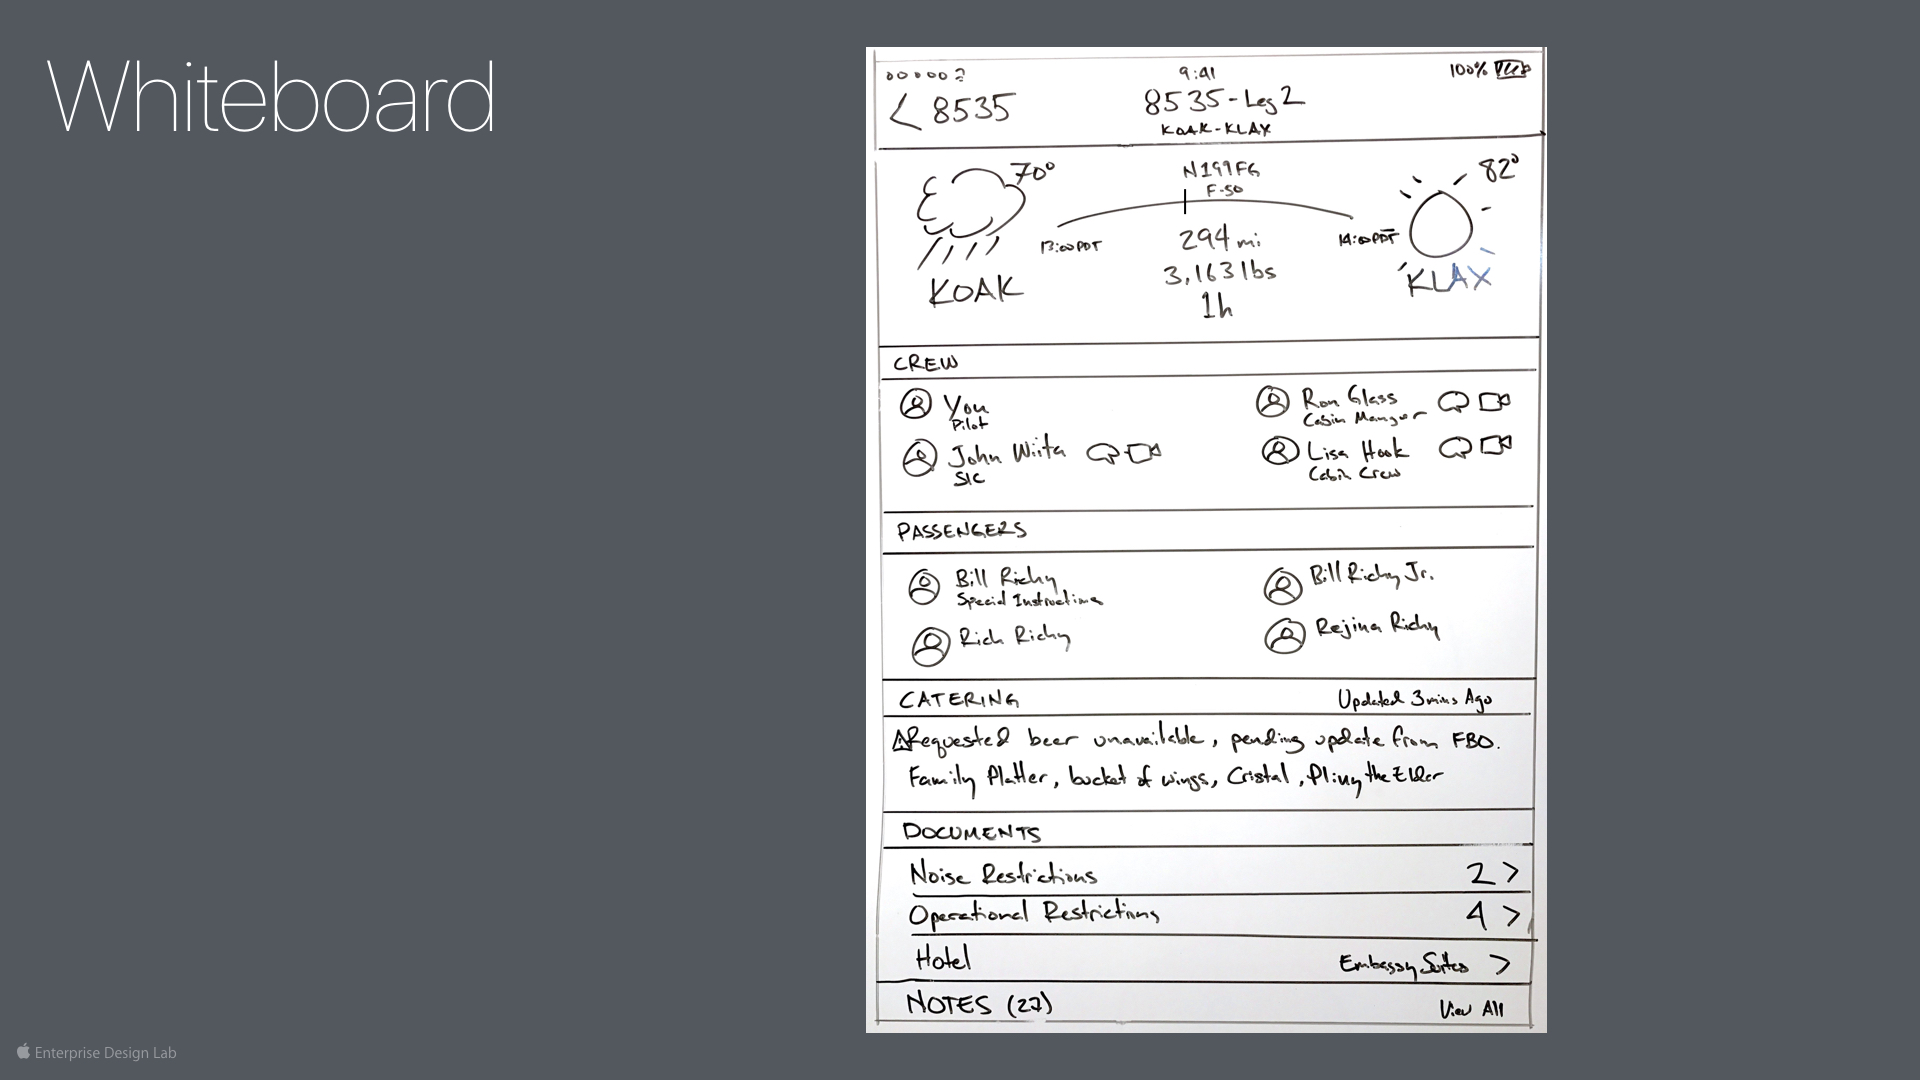 Whiteboard
9:41
100%
< 8535
8535-Leg 2
KOAK-KLAX
70°
N199FG
F-50
82°
13:00 PDT
294 mi
14:00 PDT
3,163 lbs
KOAK
1h
KLAX
CREW
You
Pilot
Ron Glass
Cabin Manger
John Wiita
SIC
Lisa Hook
Cabin Crew
PASSENGERS
Bill Richy
Special Instructions
Bill Richy Jr.
Rich Richy
Rejina Richy
CATERING
Updated 3 mins Ago
Requested beer unavailable, pending update from FBO.
Family Platter, bucket of wings, Cristal, Pliny the Elder
DOCUMENTS
Noise Restrictions 2 >
Operational Restrictions 4 >
Hotel Embassy Suites >
NOTES (27) View All
Enterprise Design Lab